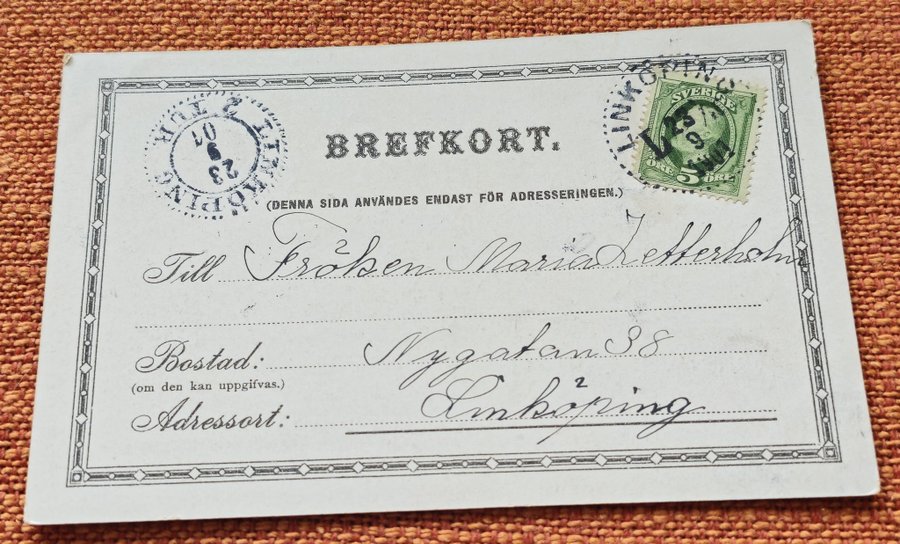 BREFKORT.
(DENNA SIDA ANVÄNDES ENDAST FÖR ADRESSERINGEN.)
Till Fröken Maria Zetterholm
Bostad: Nygatan 38
(om den kan uppgifvas.)
Adressort: Linköping
LINKÖPING
25
9
1901
SVERIGE
ÖRE 5 ÖRE
LINKÖPING 1. TUR
23
9
01